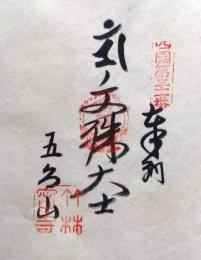 四國第三十一番
奉納
文殊大士
五台山
竹林
寺印